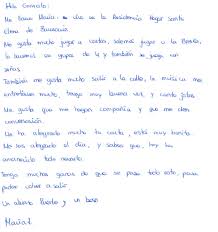 Hola Gonzalo:
Me llamo María, vivo en la Residencia Hogar Santa
Elena de
Me gusta mucho jugar a cartas, solemos jugar a la Brisca,
lo hacemos en grupos de 4 y también se juega con
señas.
También me gusta mucho salir a la calle, la música me
entretiene mucho, tengo muy buena voz, y canto
Me gusta que me hagan compañía y que me den
conversación.
Me ha alegrado mucho tu carta, está muy bonita.
Nos has alegrado el día, y sabes que, hoy ha
amanecido todo nevado.
Tengo muchas ganas de que se pase todo esto, para
poder volver a salir.
Un abrazo fuerte y un beso
María